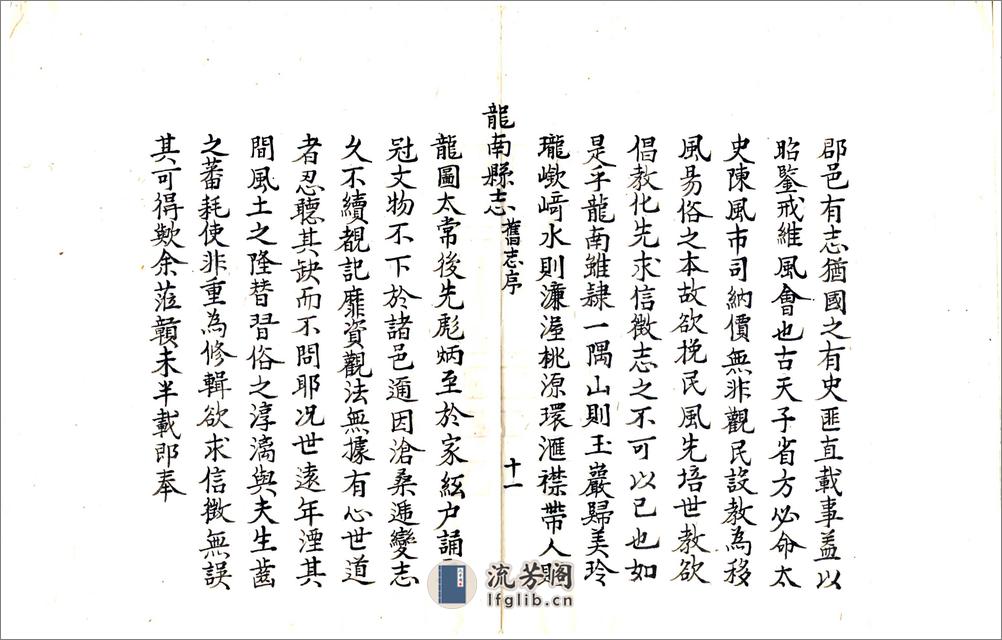 郡邑有志猶國之有史匪直載事蓋以
昭鑒戒維風會也古天子省方必命太
史陳風市司納價無非觀民設教為移
風易俗之本故欲挽民風先培世教欲
倡教化先求信徵志之不可以已也如
是乎龍南雖隸一隅山則玉巖歸美玲
瓏嶔﨑水則濂渥桃源環滙襟帶人
龍南縣志 舊志序 十一
龍圖太常後先彪炳至於家絃户誦
冠文物不下於諸邑邇因滄桑遞變志
久不續覩記靡資觀法無據有心世道
者忍聽其缺而不問耶况世遠年湮其
間風土之隆替習俗之淳漓與夫生齒
之蕃耗使非重為修輯欲求信徵無誤
其可得欤余蒞贛未半載即奉
流芳閣
lfglib.cn